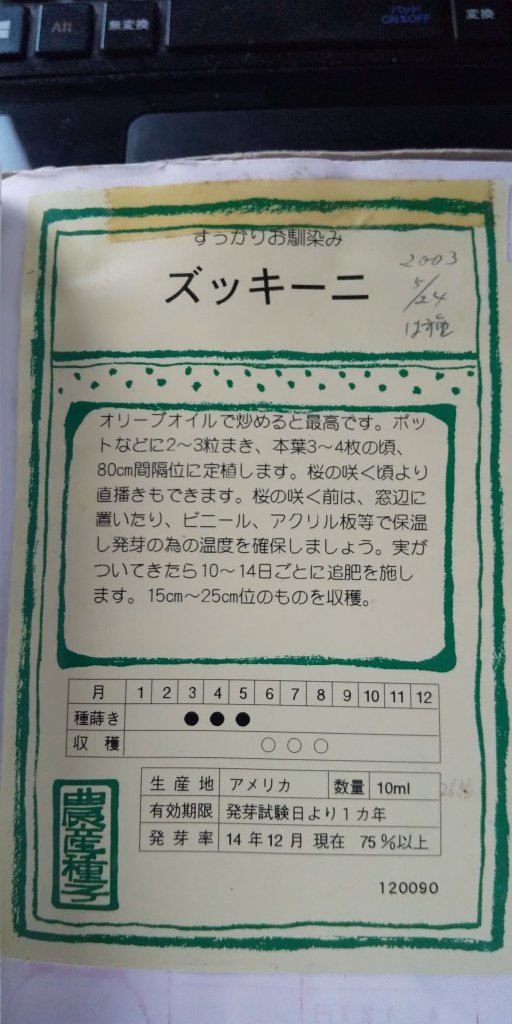 Alt
無変換
パッド
ON&OFF
変換
すっかりお馴染み
ズッキーニ
2003
5/24
は種
オリーブオイルで炒めると最高です。ポッ
トなどに2〜3粒まき、本葉3〜4枚の頃、
80cm間隔位に定植します。桜の咲く頃より
直播きもできます。桜の咲く前は、窓辺に
置いたり、ビニール、アクリル板等で保温
し発芽の為の温度を確保しましょう。実が
ついてきたら10〜14日ごとに追肥を施し
ます。15cm〜25cm位のものを収穫。
月 1 2 3 4 5 6 7 8 9 10 11 12
種蒔き ● ● ●
収穫 ○ ○ ○
生産地 アメリカ 数量 10ml
有効期限 発芽試験日より1カ年
発芽率 14年12月 現在 75%以上
農産種子
120090